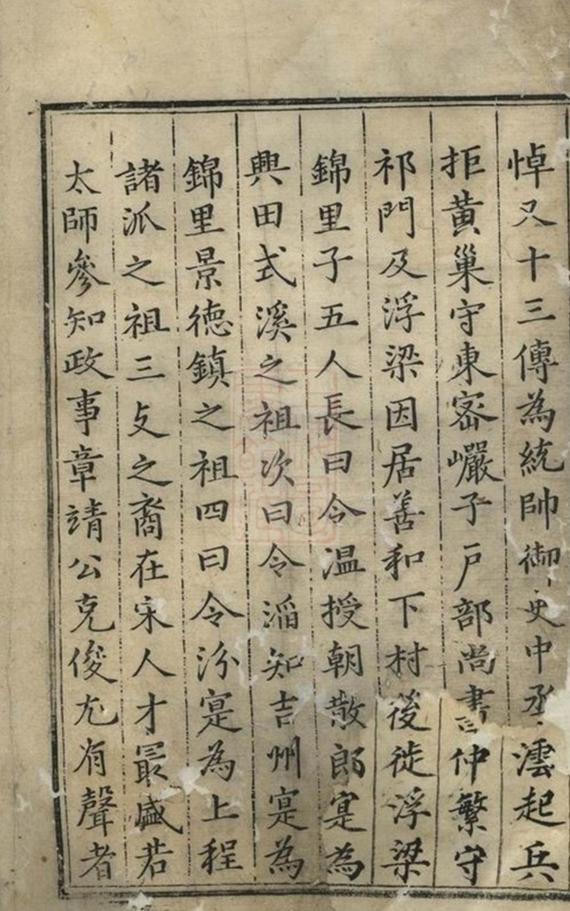 悼又十三傳為統帥御史中丞澐起兵
拒黃巢守東密巖子戶部尚書仲繁守
祁門及浮梁因居善和下村後徙浮梁
錦里子五人長曰令温授朝散郎寔為
興田式溪之祖次曰令滔知吉州寔為
錦里景徳鎮之祖四曰令汾寔為上程
諸派之祖三攴之裔在宋人才最盛若
太師參知政事章靖公克俊尤有聲者